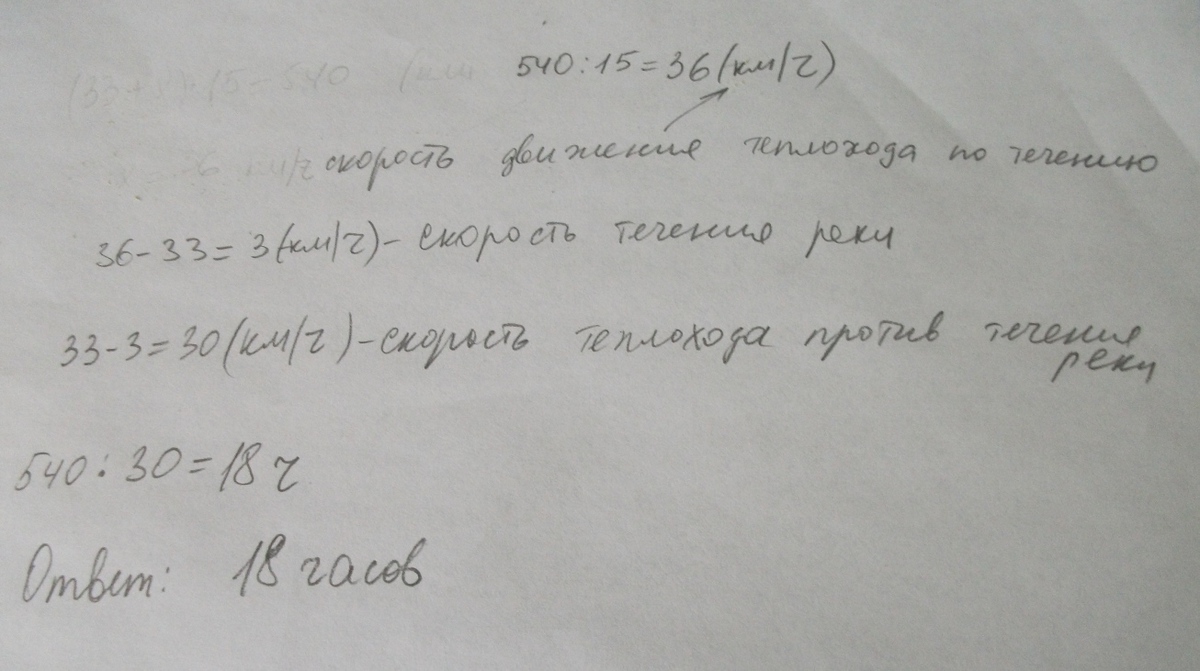 540:15=36(км/ч)
скорость движения теплохода по течению
36-33=3(км/ч)-скорость течения реки
33-3=30(км/ч)-скорость теплохода против течения
реки
540:30=18ч
Ответ: 18 часов